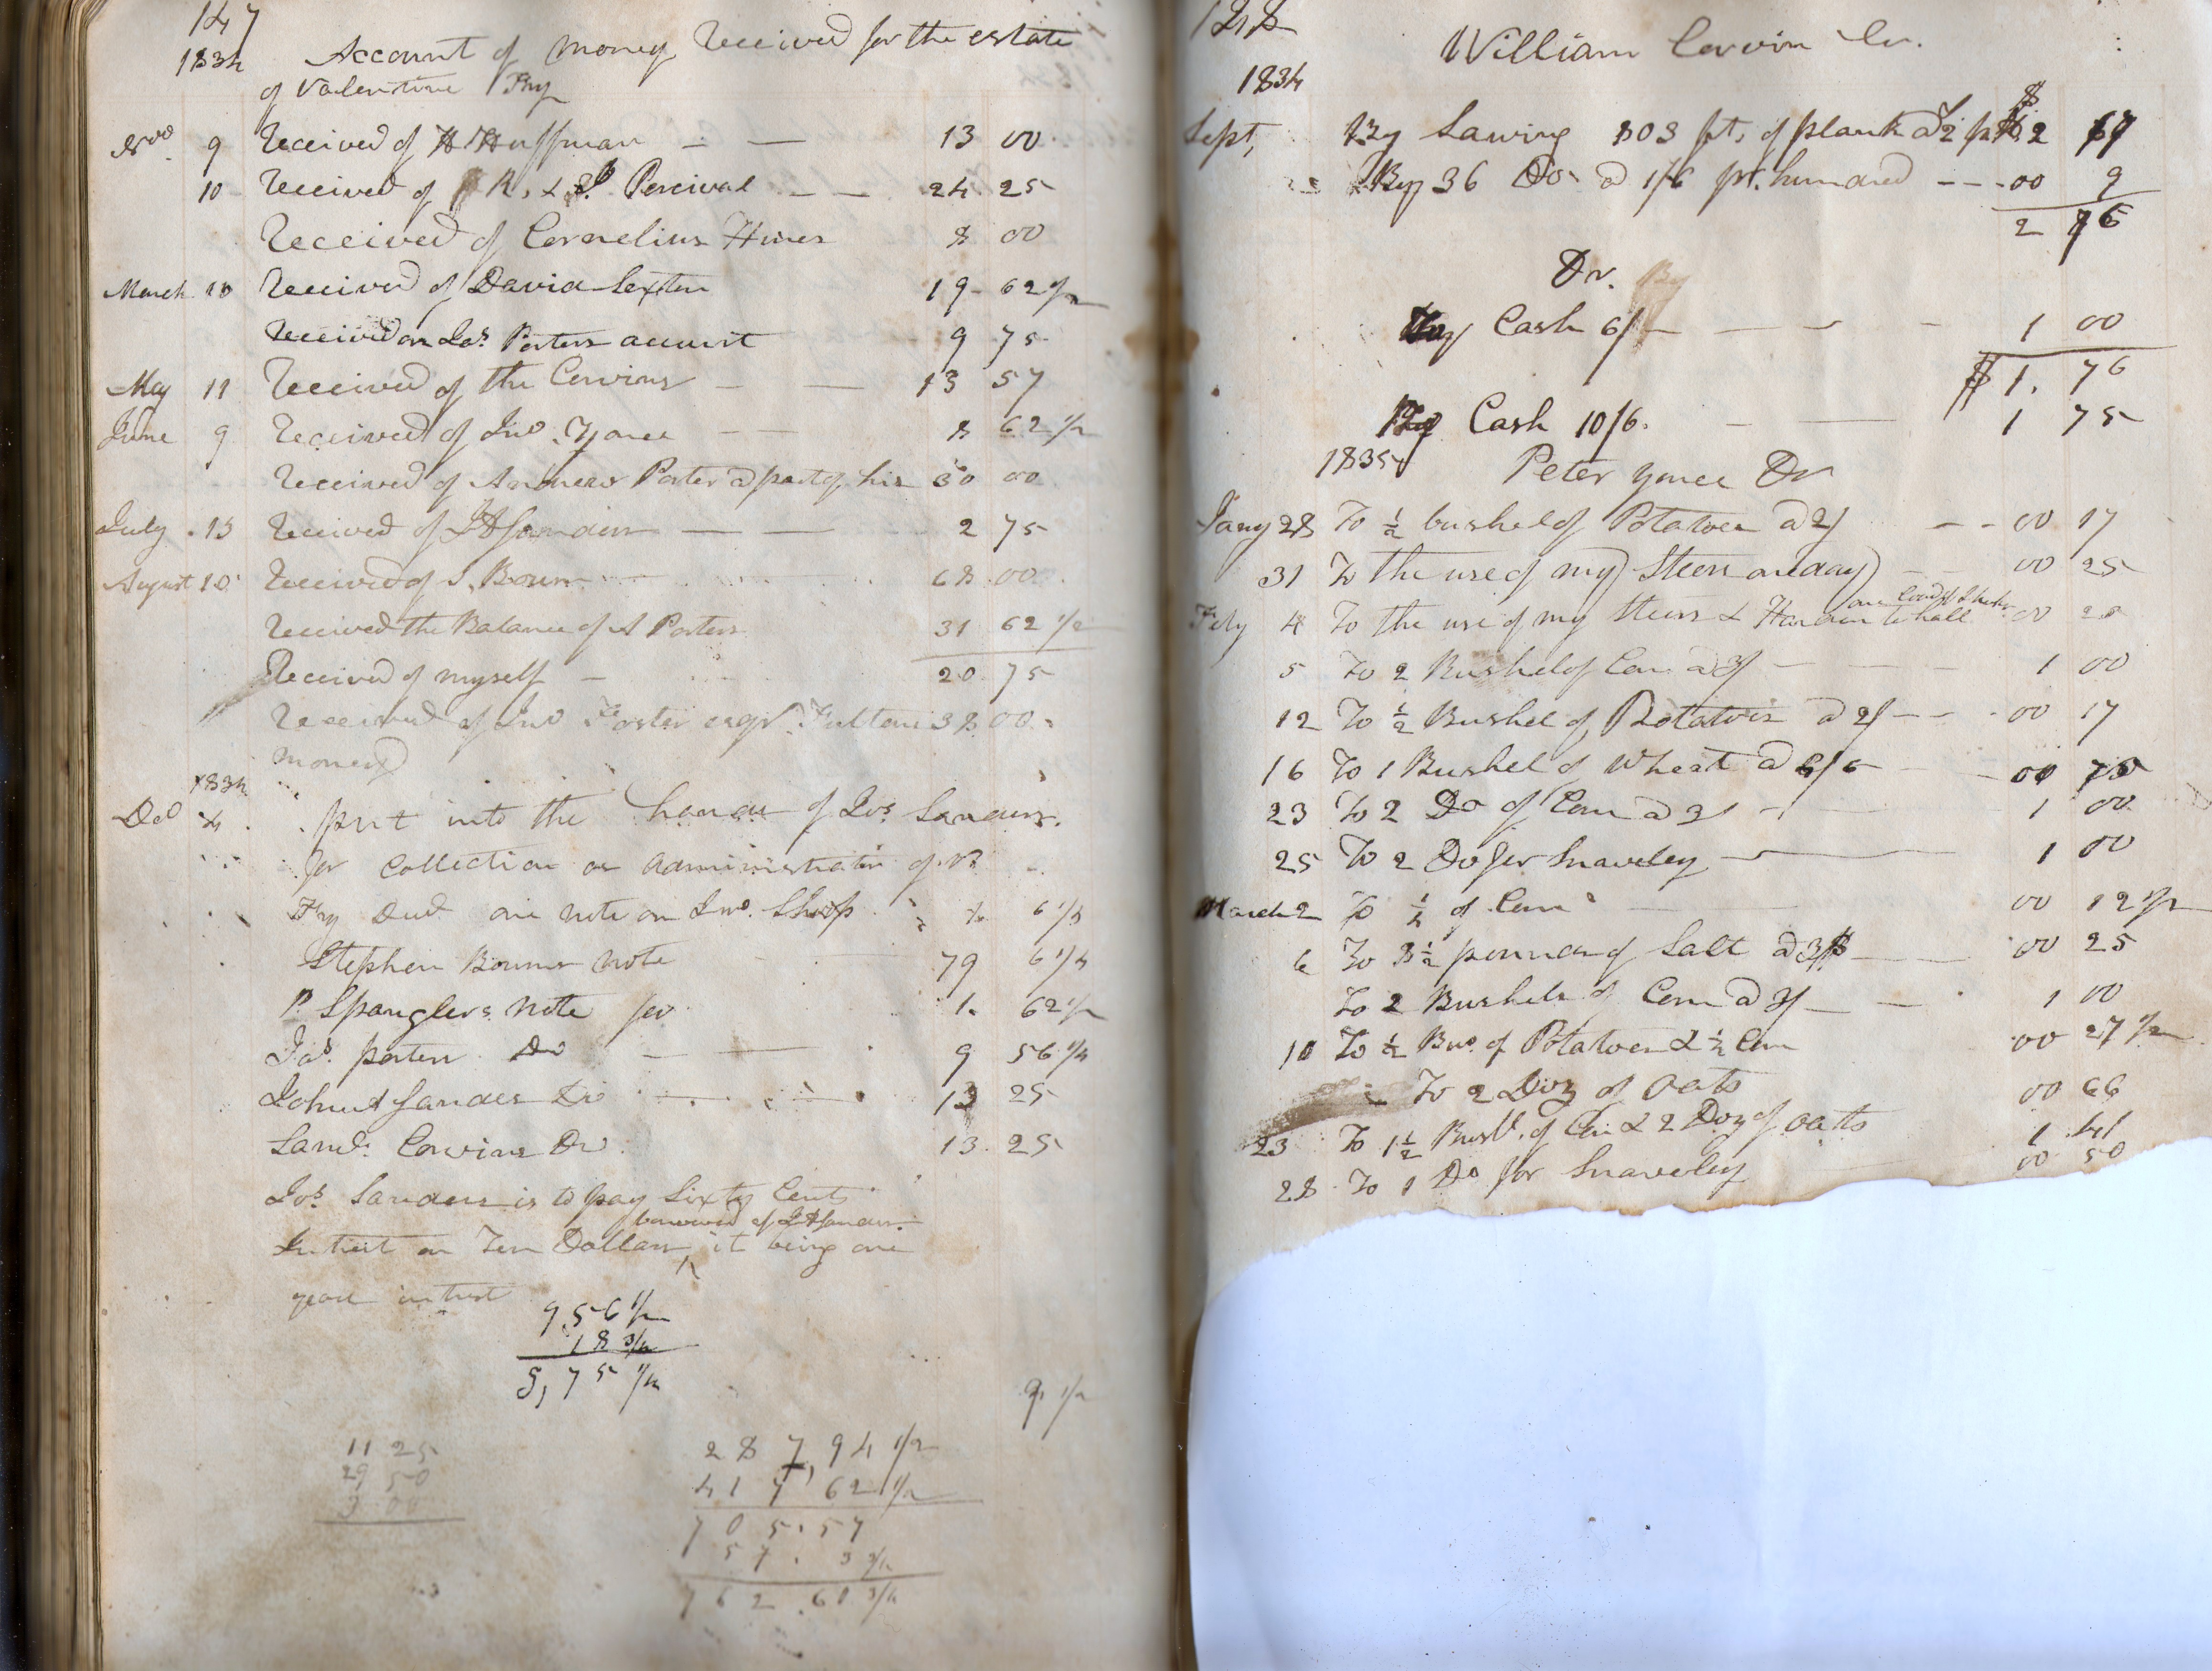 147
1834 Account of money Received for the estate
of Valentine Fry
Nov 9 Received of H Huffman — 13 00
10 Received of R, & J. Percival — 24. 25
Received of Cornelius Hines 8 00
March 10 Received of David Sexton 19. 62 1/2
Received on Jos. Porters account 9 75
May 11 Received of the Corvins — 13 57
June 9 Received of Jno. Yonce — 8 62 1/2
Received of Andrew Porter a part of his 30 00
July 13 Received of J A Sanders — 2 75
August 10 Received of S. Bourn 68 00
Received the Balance of A Porters 31 62 1/2
Received of myself — 20. 75
Received of Jno Foster esqr. 38 00
money
1834
Dec 4 put into the hands of Jos Sanders.
for Collection as administrator of V.
Fry Decd one note on Jno. 6 1/4
Stephen Bourns note 79 6 1/4
P. Spanglers note for 1. 62 1/2
Jas. porters Do — 9 56 1/4
John A Sanders Do 13 25
Saml. Corvins Do 13. 25
Jos. Sanders is to pay Sixty Cents
borrowed of J A Sanders.
Intrest on Ten Dollars ^ it being one
year intrest
9.56 1/2
18 3/4
9,75 1/4
9. 1/2
11 25
29 50
3 00
287,94 1/2
417 62 1/2
705.57
57. 3 3/4
762.60 3/4
148
William Corvin Cr.
1834
$
Sept, By Sawing 803 ft. of plank a 2 67
By 36 Do a 1/6 pr. hundred — 00 9
2 76
Dr.
Cash 6/— 1 00
$ 1. 76
Cash 10/6. — 1 75
1835 Peter Yonce Dr
Jany 28 To 1/2 bushel of Potatoes a 2/ — 00 17
31 To the use of my Steers one day — 00 25
one load of
Feby 4 To the use of my Steers & to hall 00 20
5 To 2 Bushel of Corn a 3/ — 1 00
12 To 1/2 Bushel of Potatoes a 2/ — 00 17
16 To 1 Bushel of Wheat a — 00 75
23 To 2 Do of Corn a 3/ — 1 00
25 To 2 Do for Snaveley — 1 00
March 2 To 1/4 of Corn — 00 12 1/2
6 To 8 1/2 pounds of Salt a 3 — 00 25
To 2 Bushels of Corn a 3/ — 1 00
10 To 1/2 Bus. of Potatoes & 1/2 Corn 00 27 1/2
To 2 Doz of Oats 00 66
23 To 1 1/2 Bush. of Corn & 2 Doz of oats 1 41
28 To 1 Do for Snaveley 00 50